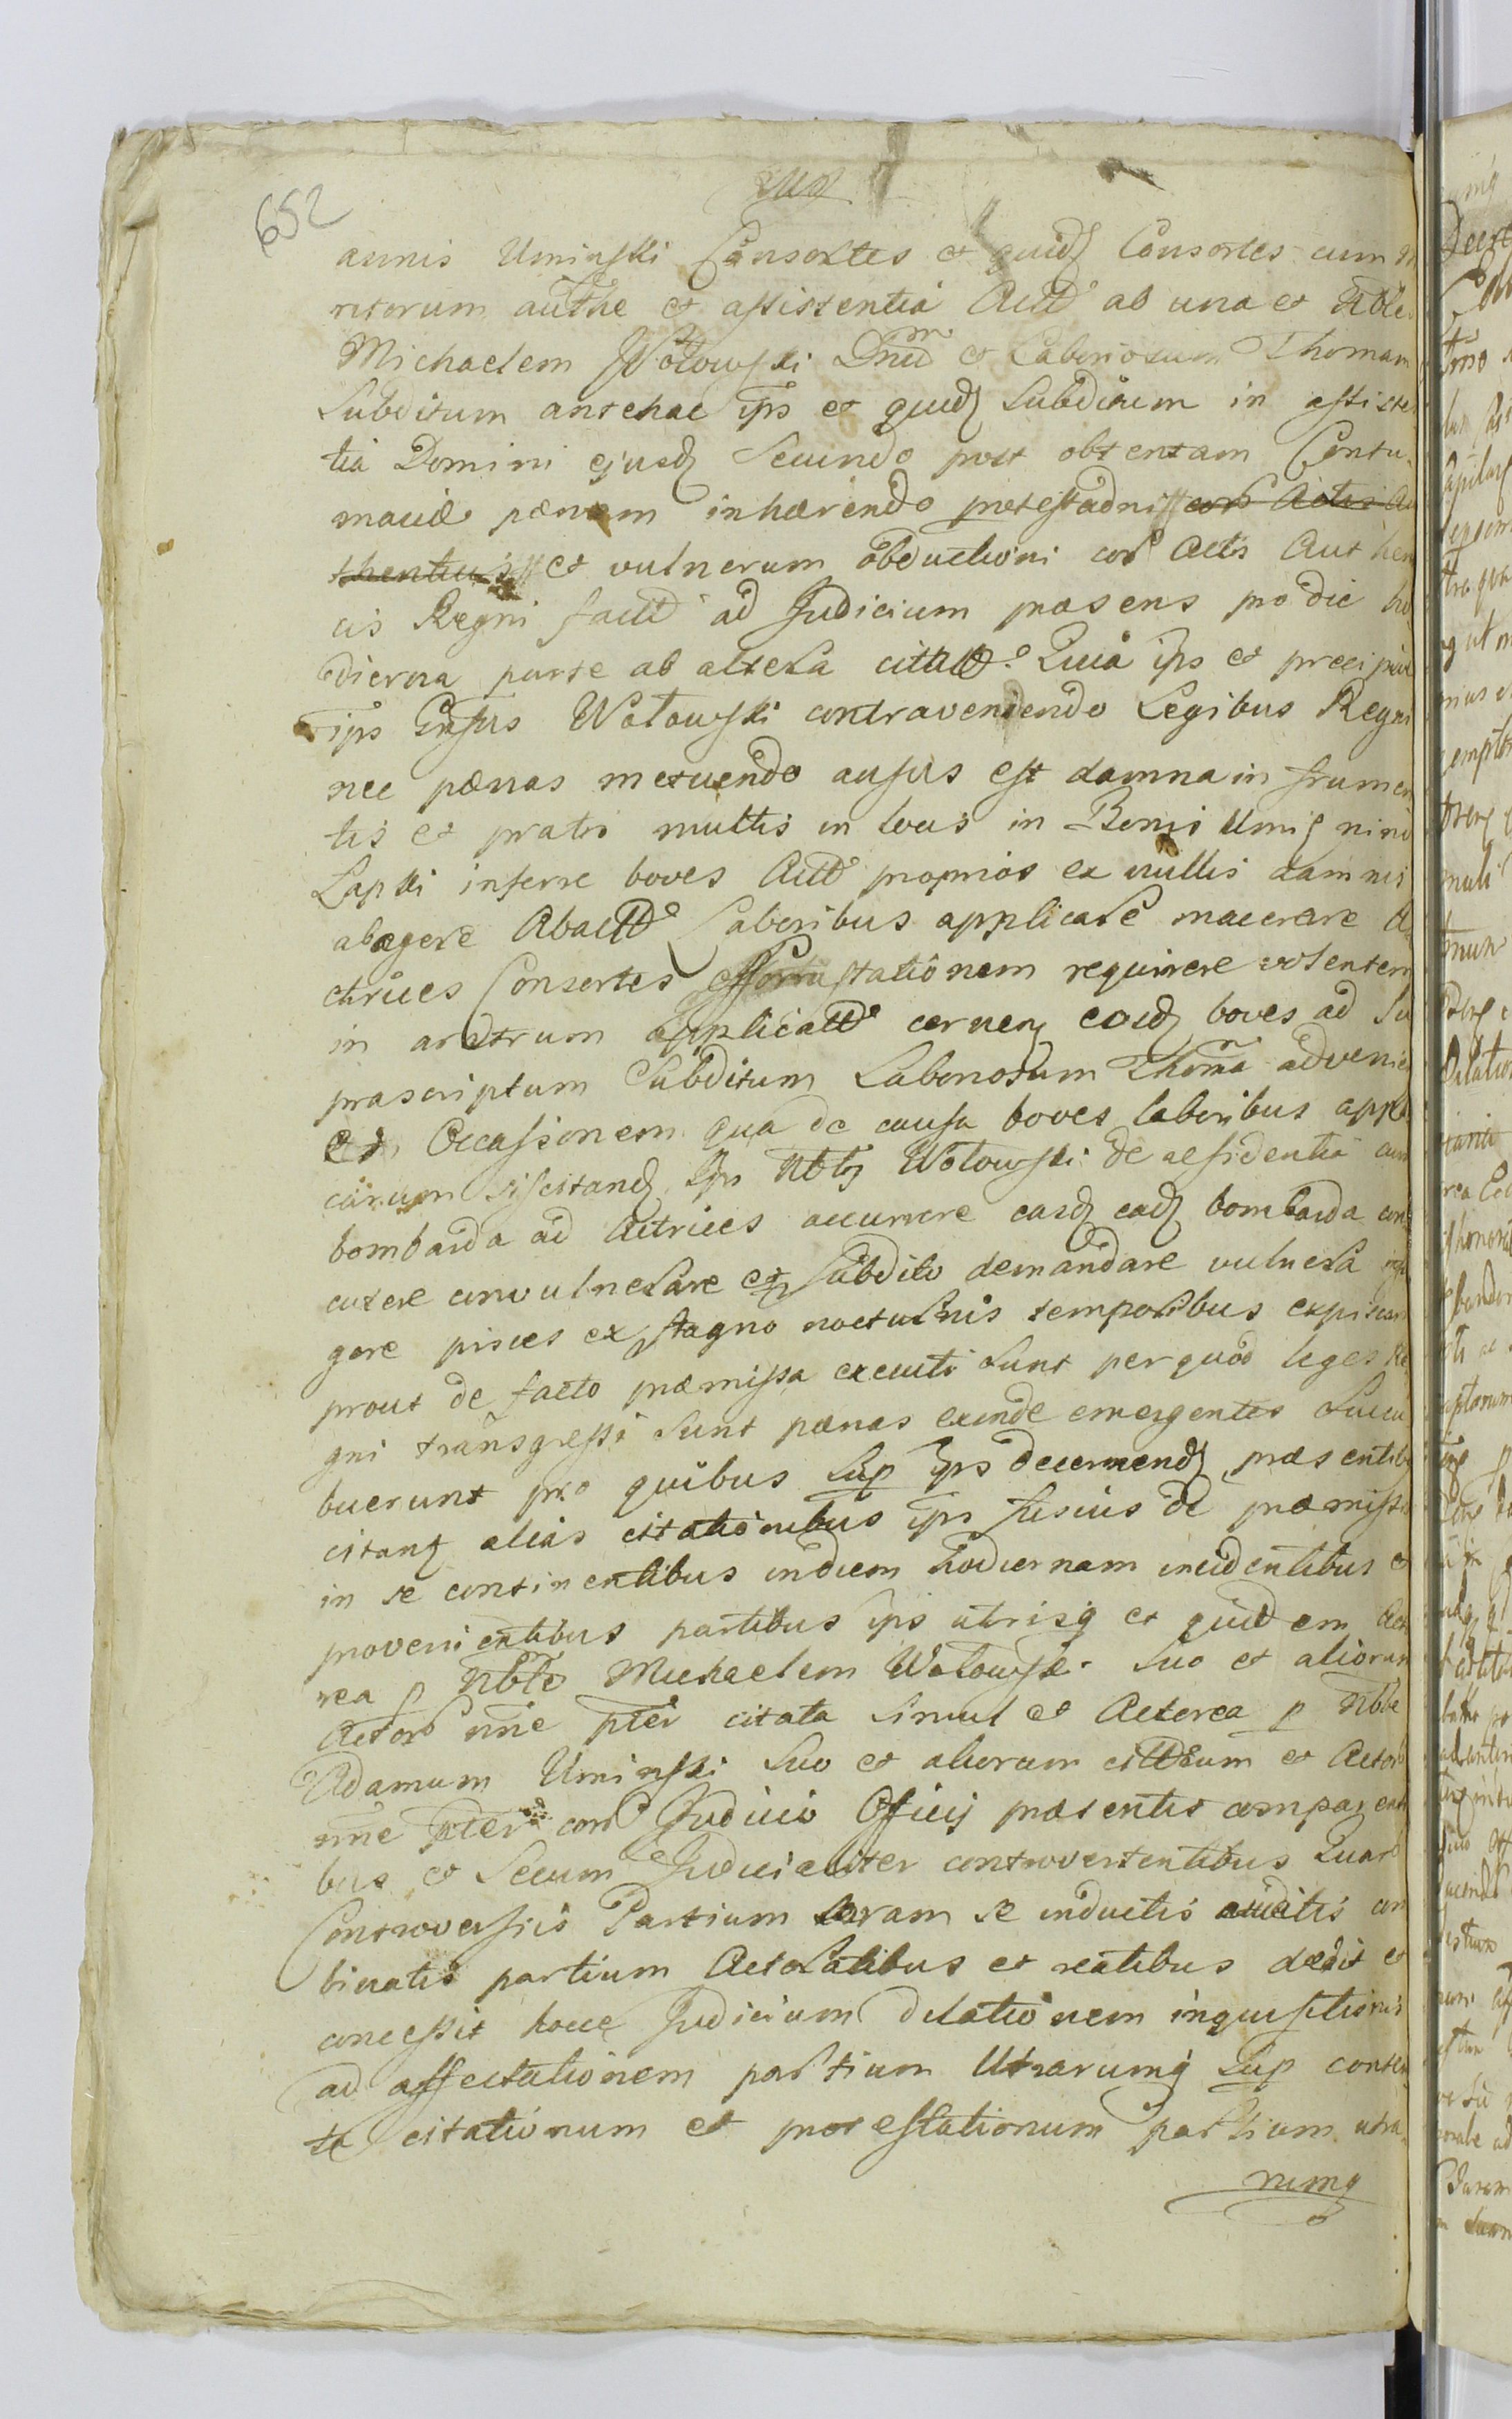 652
annis Uminski Consortes et quidz Consortes cum
ritorum authe et assistentia Actt ab una et Nble
Michaelem Wolowski Dnum et Laboriosum Thomam
Subditum antehac ips et quidz Subditum in assisten
tia Domini ejusdz Secundo post obtentam Contu
maciæ pænam inhærendo protestadni cor Actis Au
thenticis et vulnerum obductioni cor Actis Authen
cis Regni factt ad Judicium præsens pro die ho
dierna parte ab altera citatt. Quia ips et præcipue
ips Gnsus Wolowski contraveniendo Legibus Regni
nec pænas metuendo ausus est damna in frumen
tis et pratis multis in locis in Bonis
Lapski inferre boves Actt proprios ex nullis damnis
abagere Abactt Laboribus applicare macerare A
ctrices Consortes requirere volentem
in aratrum applicatt cernenz eosdz boves ad Su
præscriptum Subditum Laboriosum Thoma advenie
et Occasionem qua de causa boves laboribus appli
carum siscitandz Ips Nblis Wolowski de residentia cum
bombarda ad Actrices accurrere easdz eadz bombarda con
cutere convulnerare et Subdito demandare vulnera infli
gere pisces ex stagno nocturnis temporibus expiscari
prout de facto præmissa executi sunt per quod leges Re
gni transgressi sunt pænas exinde emergentes succu
buerunt pro quibus Sup ips decernendz præsentib
citantz alias citationibus ips fusius de præmissis
in se continentibus indiem hodiernam incidentibus et
provenientibus partibus ips utrisq et quidem Acto
rea p Nble Michaelem Wolowski Suo et aliorum
Actor nne ptei citata simul et Actorea p Nble
Adamum Uminski Suo et aliorum cittum et Actor
nne ptei cor Judicio Officij præsentis comparenti
bus et Secum Judicialiter controvertentibus Quar
Controversiis Partium coram se inductis auditis com
binatis partium Actoratibus et reatibus dædit et
concessit hocce Judicium dilationem inquisitionis
ad affectationem partium Utrarumq Sup conten
ta citationum et protestationum partium utra
rumq